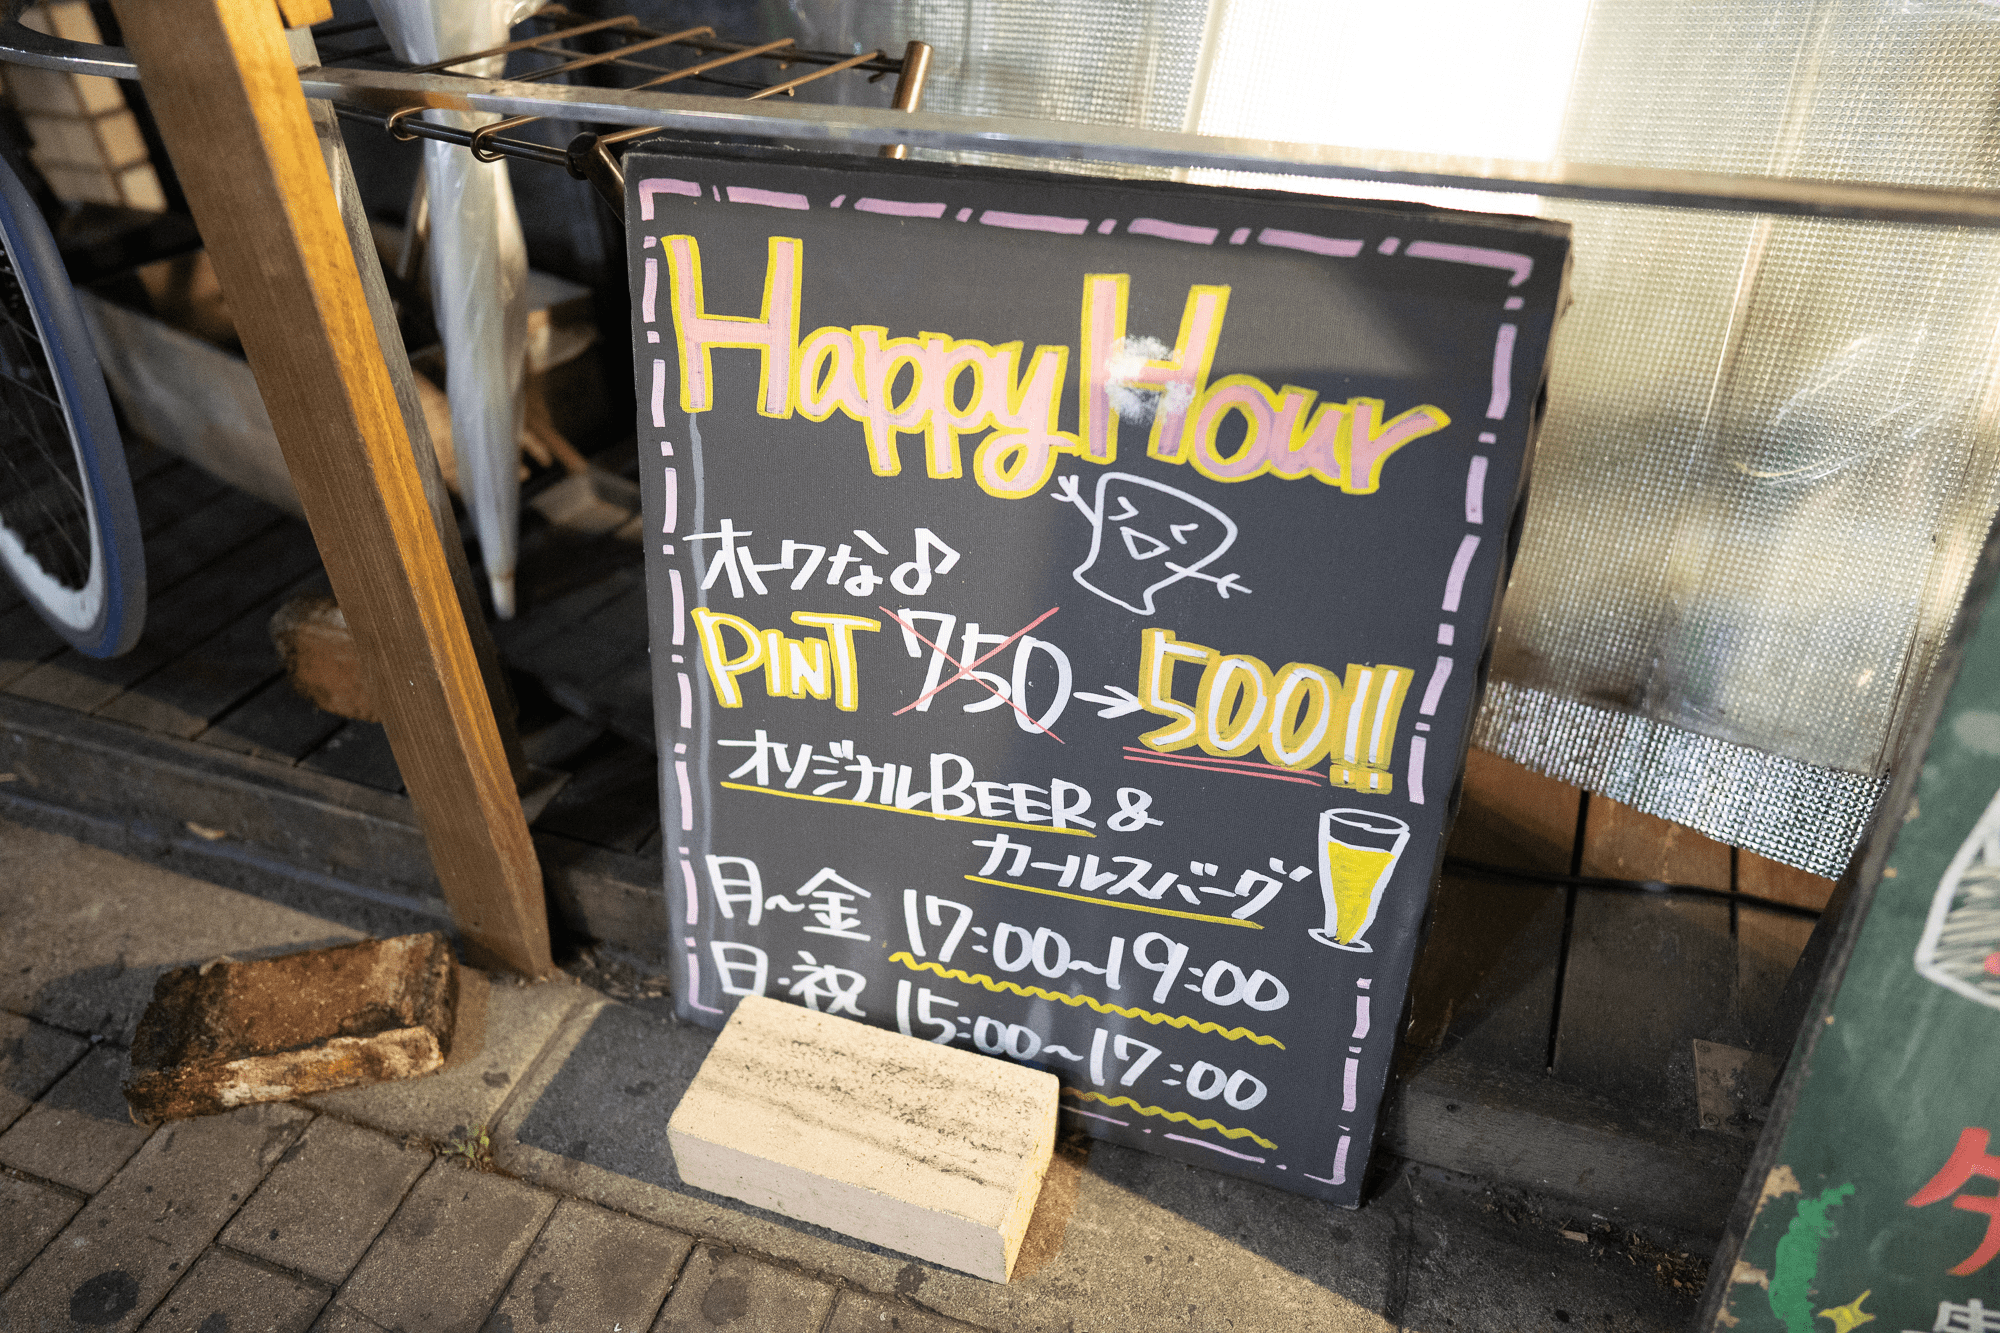 Happy Hour
オトクな♪
PINT 750→500!!
オリジナルBEER &
カールスバーグ
月〜金 17:00〜19:00
日・祝 15:00〜17:00